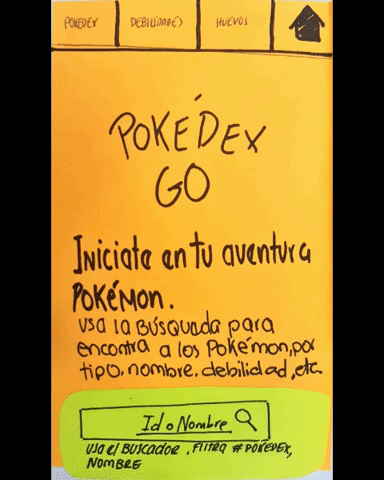 POKEDEX DEBILIDADES HUEVOS
POKÉDEX
GO
Iniciate en tu aventura
POKÉMON.
Usa la BÚsquada para
encontra a los Pokémon, por
tipo, nombre, debilidad, etc
Id o Nombre
Usa el BUSCADOR, Filtra # POKÉDEX,
NOMBRE